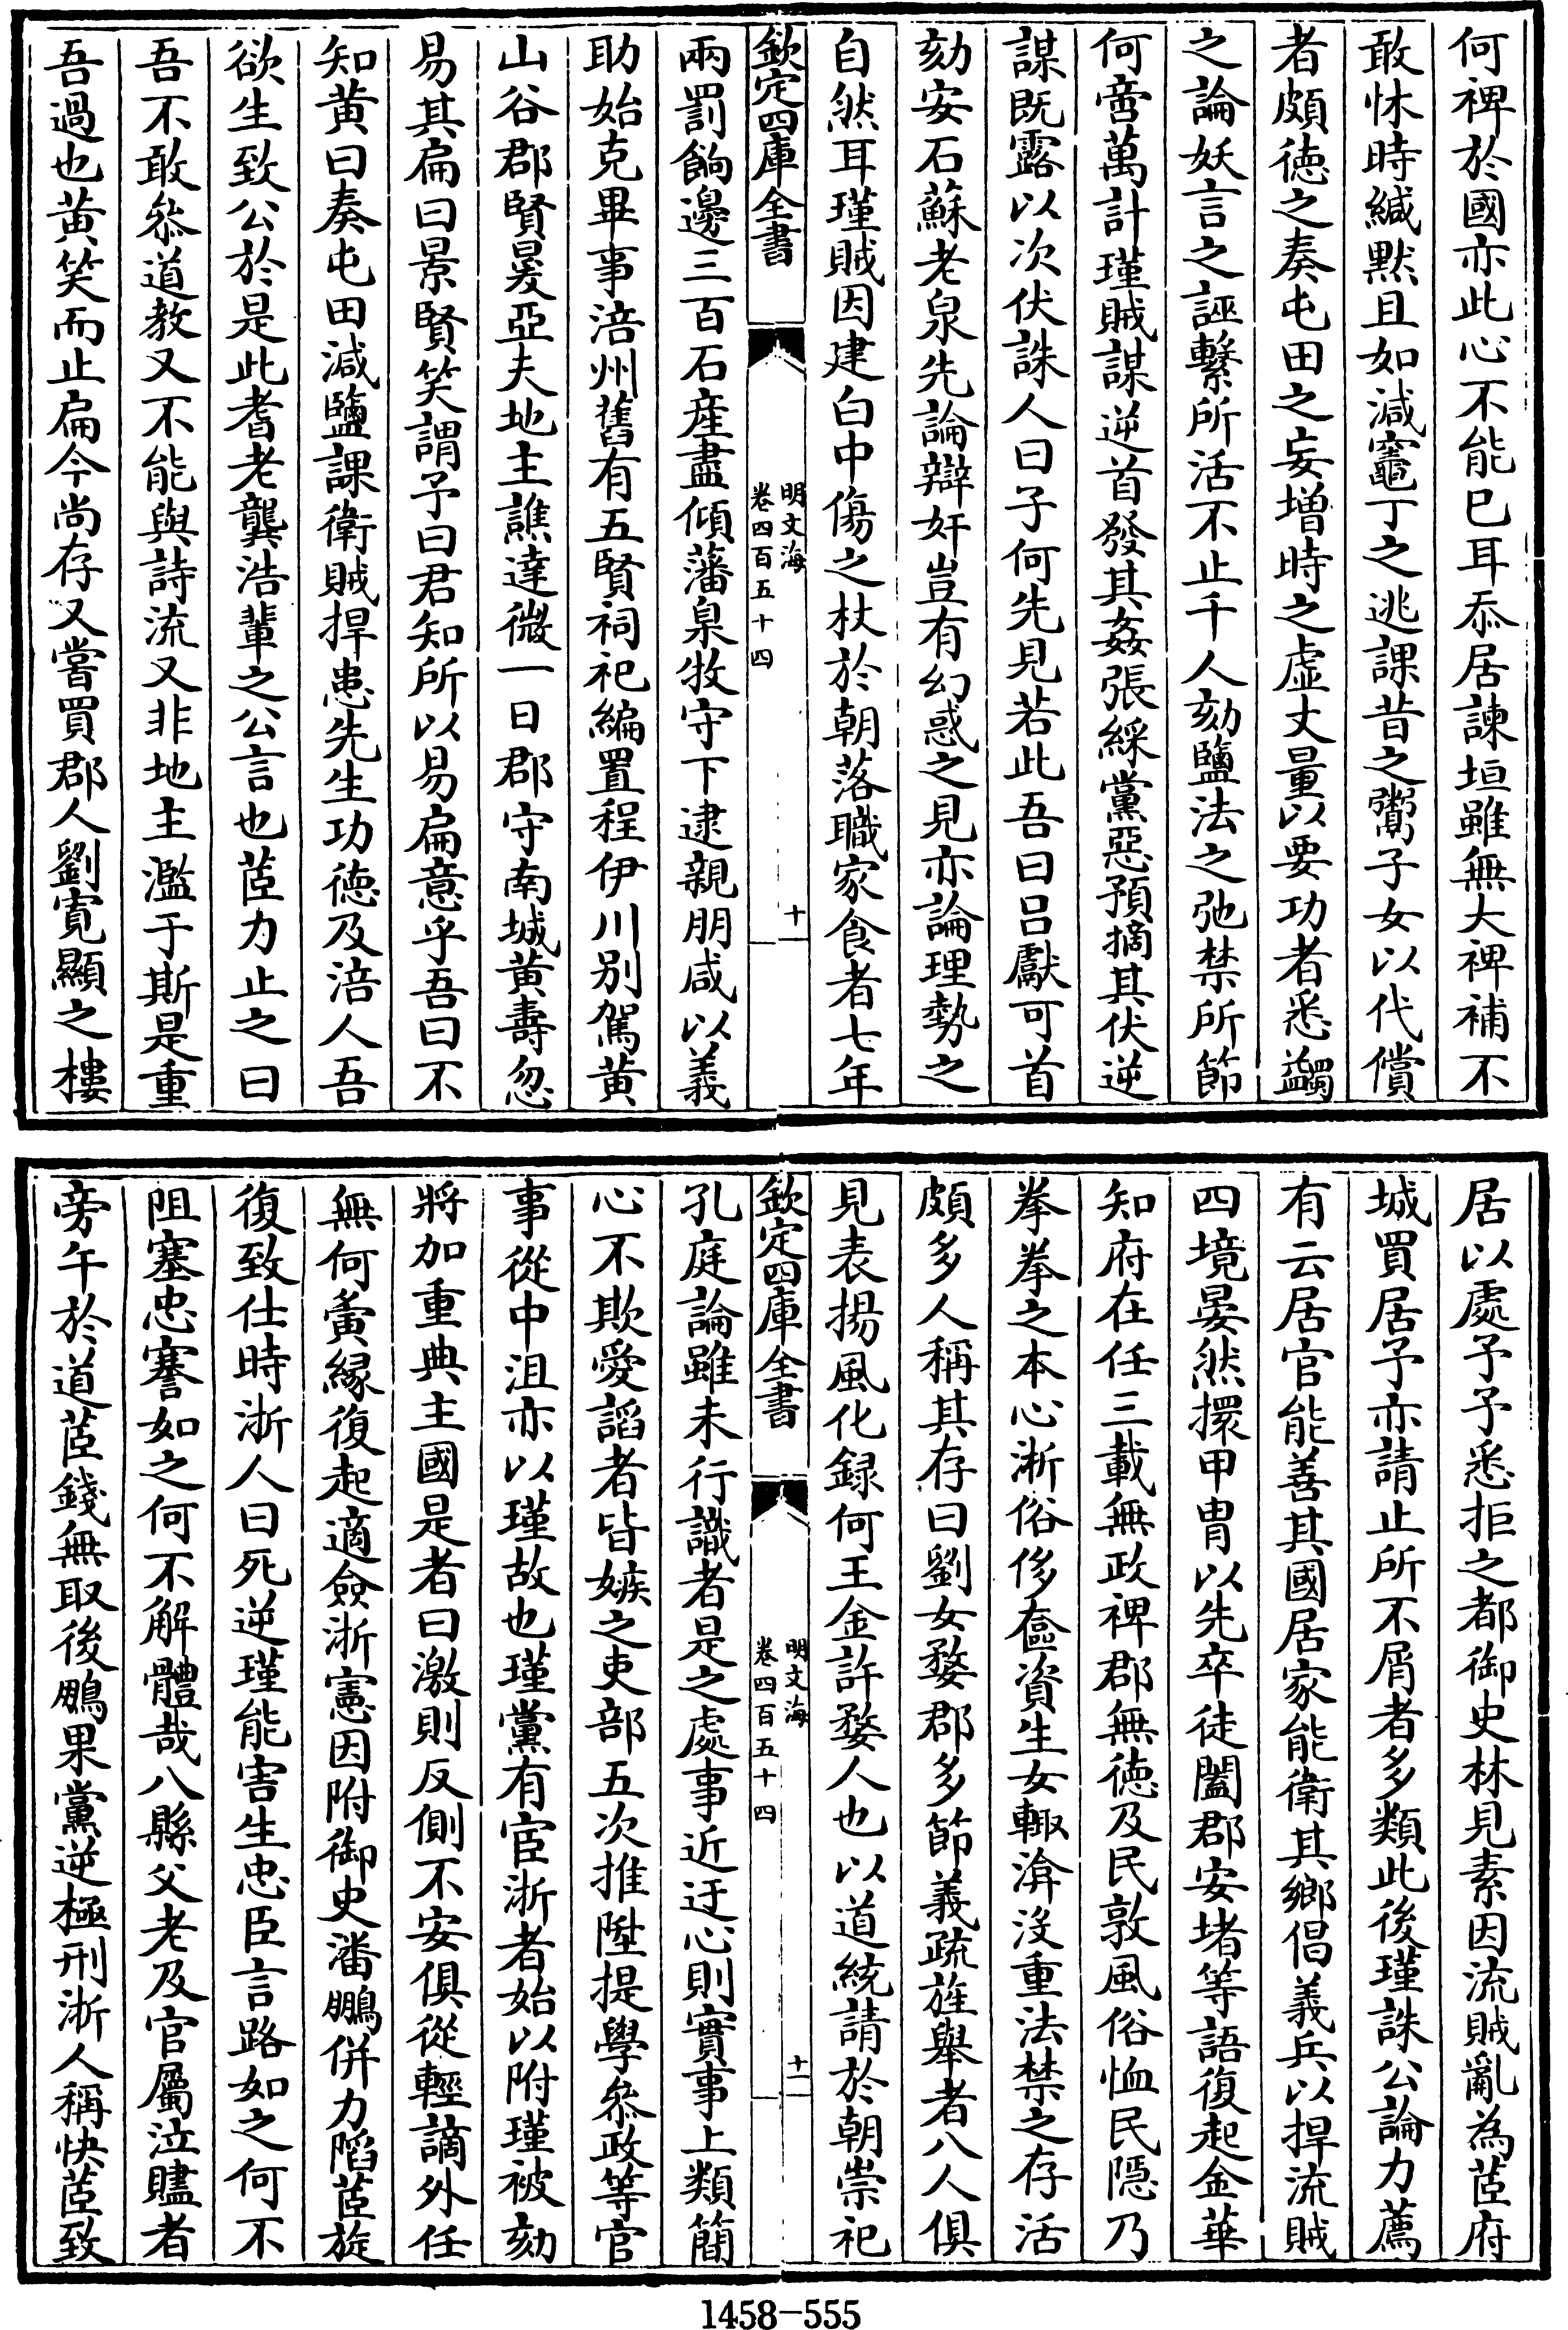 何裨於國亦此心不能已耳忝居諫垣雖無大裨補不
敢怵時緘默且如減竈丁之逃課昔之鬻子女以代償
者頗徳之奏屯田之妄增時之虚丈量以要功者悉蠲
之論妖言之誣繫所活不止千人劾鹽法之弛禁所節
何啻萬計瑾賊謀逆首發其姦張綵黨惡預摘其伏逆
謀既露以次伏誅人曰子何先見若此吾曰吕獻可首
劾安石蘇老泉先論辯奸豈有幻惑之見亦論理勢之
自然耳瑾賊因建白中傷之杖於朝落職家食者七年
欽定四庫全書
明文海
卷四百五十四
十
兩罰餉邊三百石産盡傾藩臬牧守下逮親朋咸以義
助始克畢事涪州舊有五賢祠祀編置程伊川别駕黄
山谷郡賢㬊亞夫地主譙達微一日郡守南城黄壽忽
易其扁曰景賢笑謂予曰君知所以易扁意乎吾曰不
知黄曰奏屯田減鹽課衛賊捍患先生功徳及涪人吾
欲生致公於是此耆老龔浩輩之公言也茝力止之曰
吾不敢叅道教又不能與詩流又非地主濫于斯是重
吾過也黄笑而止扁今尚存又嘗買郡人劉寛顯之樓
居以處予予悉拒之都御史林見素因流賊亂為茝府
城買居予亦請止所不屑者多類此後瑾誅公論力薦
有云居官能善其國居家能衛其鄉倡義兵以捍流賊
四境晏然擐甲胄以先卒徒闔郡安堵等語復起金華
知府在任三載無政裨郡無徳及民敦風俗恤民隠乃
拳拳之本心淅俗侈奩資生女輙渰沒重法禁之存活
頗多人稱其存曰劉女婺郡多節義疏旌舉者八人俱
見表揚風化録何王金許婺人也以道統請於朝崇祀
欽定四庫全書
明文海
卷四百五十四
十一
孔庭論雖未行識者是之處事近迂心則實事上類簡
心不欺愛謟者皆嫉之吏部五次推陞提學叅政等官
事從中沮亦以瑾故也瑾黨有宦浙者始以附瑾被劾
將加重典主國是者曰激則反側不安俱從輕謫外任
無何夤縁復起適僉浙憲因附御史潘鵬併力䧟茝旋
復致仕時浙人曰死逆瑾能害生忠臣言路如之何不
阻塞忠謇如之何不解體哉八縣父老及官屬泣贐者
旁午於道茝錢無取後鵬果黨逆極刑浙人稱快茝致
1458-555